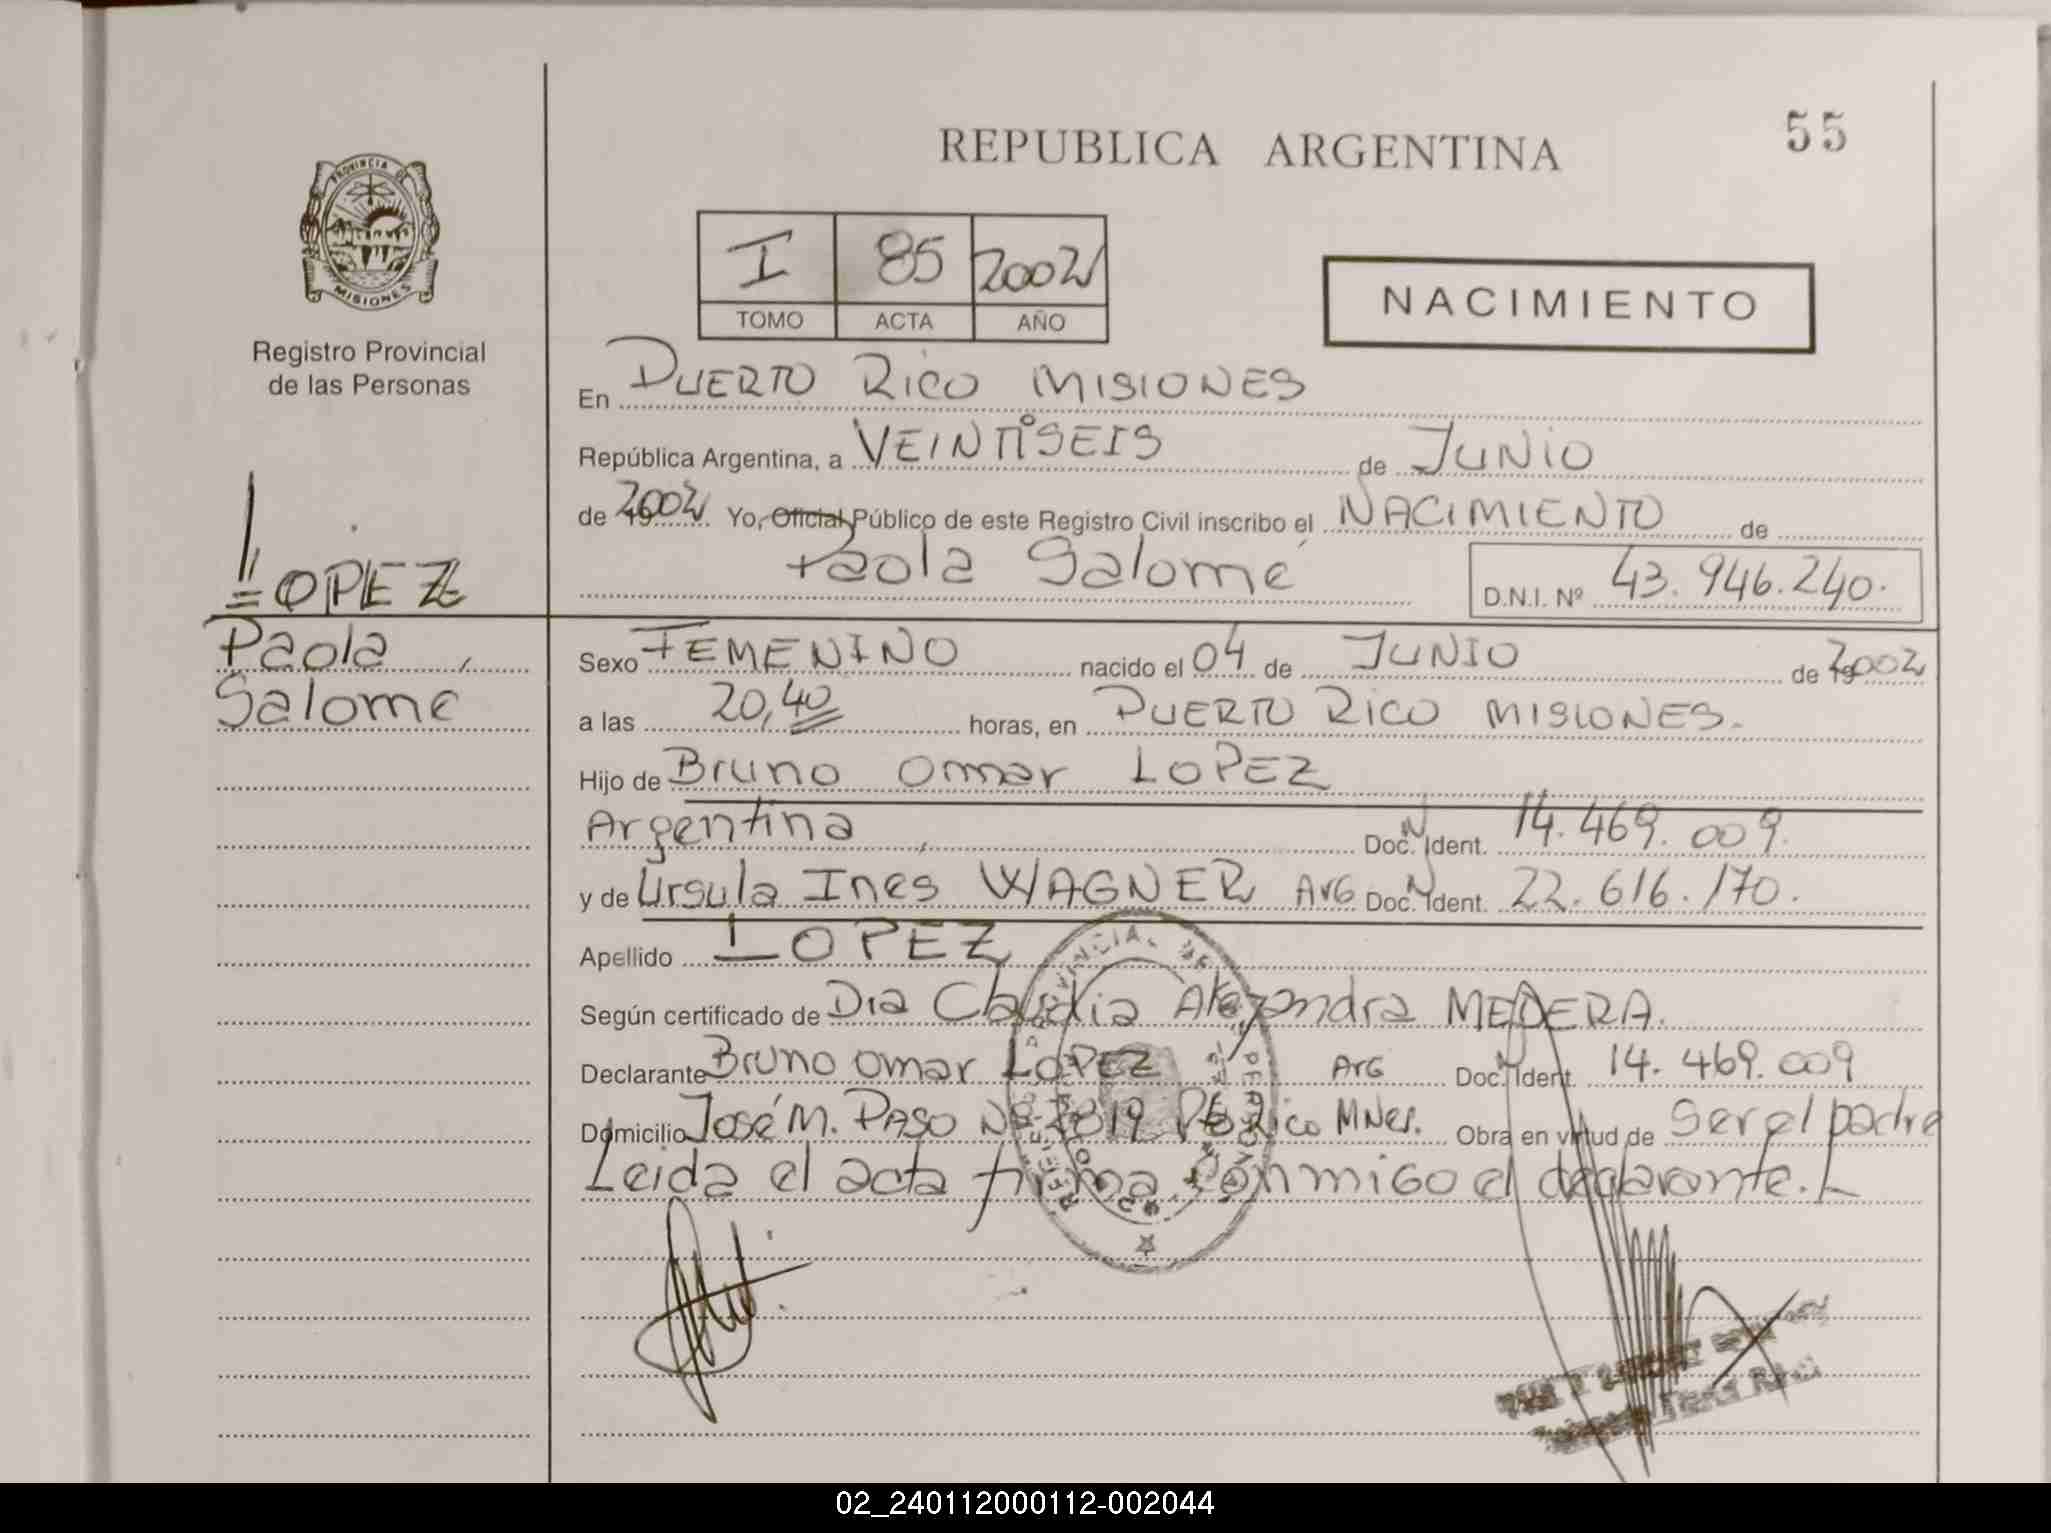 REPUBLICA ARGENTINA
55
PROVINCIA DE
MISIONES
Registro Provincial
de las Personas
I 85 2002
TOMO ACTA AÑO
NACIMIENTO
En PUERTO RICO MISIONES
República Argentina, a VEINTISEIS de JUNIO
de 2002 Yo, Oficial Público de este Registro Civil inscribo el NACIMIENTO de
Paola Salomé
D.N.I. Nº 43.946.240.
LOPEZ
Paola,
Salome
Sexo FEMENINO nacido el 04 de JUNIO de 2002
a las 20,40 horas, en PUERTO RICO MISIONES.
Hijo de Bruno Omar LOPEZ
Argentina, Doc. N Ident. 14.469.009.
y de Ursula Ines WAGNER ArG Doc. N Ident. 22.616.170.
Apellido LOPEZ
Según certificado de Dra Claudia Alejandra MEDERA.
Declarante Bruno Omar LOPEZ ArG Doc. N Ident. 14.469.009
Domicilio José M. PASO Nº 2819 Pto Rico MNes. Obra en virtud de Ser el padre
Leida el acta firma conmigo el declarante.
02_240112000112-002044